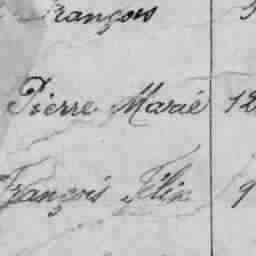 François
Pierre Marié 12
François Félix 9